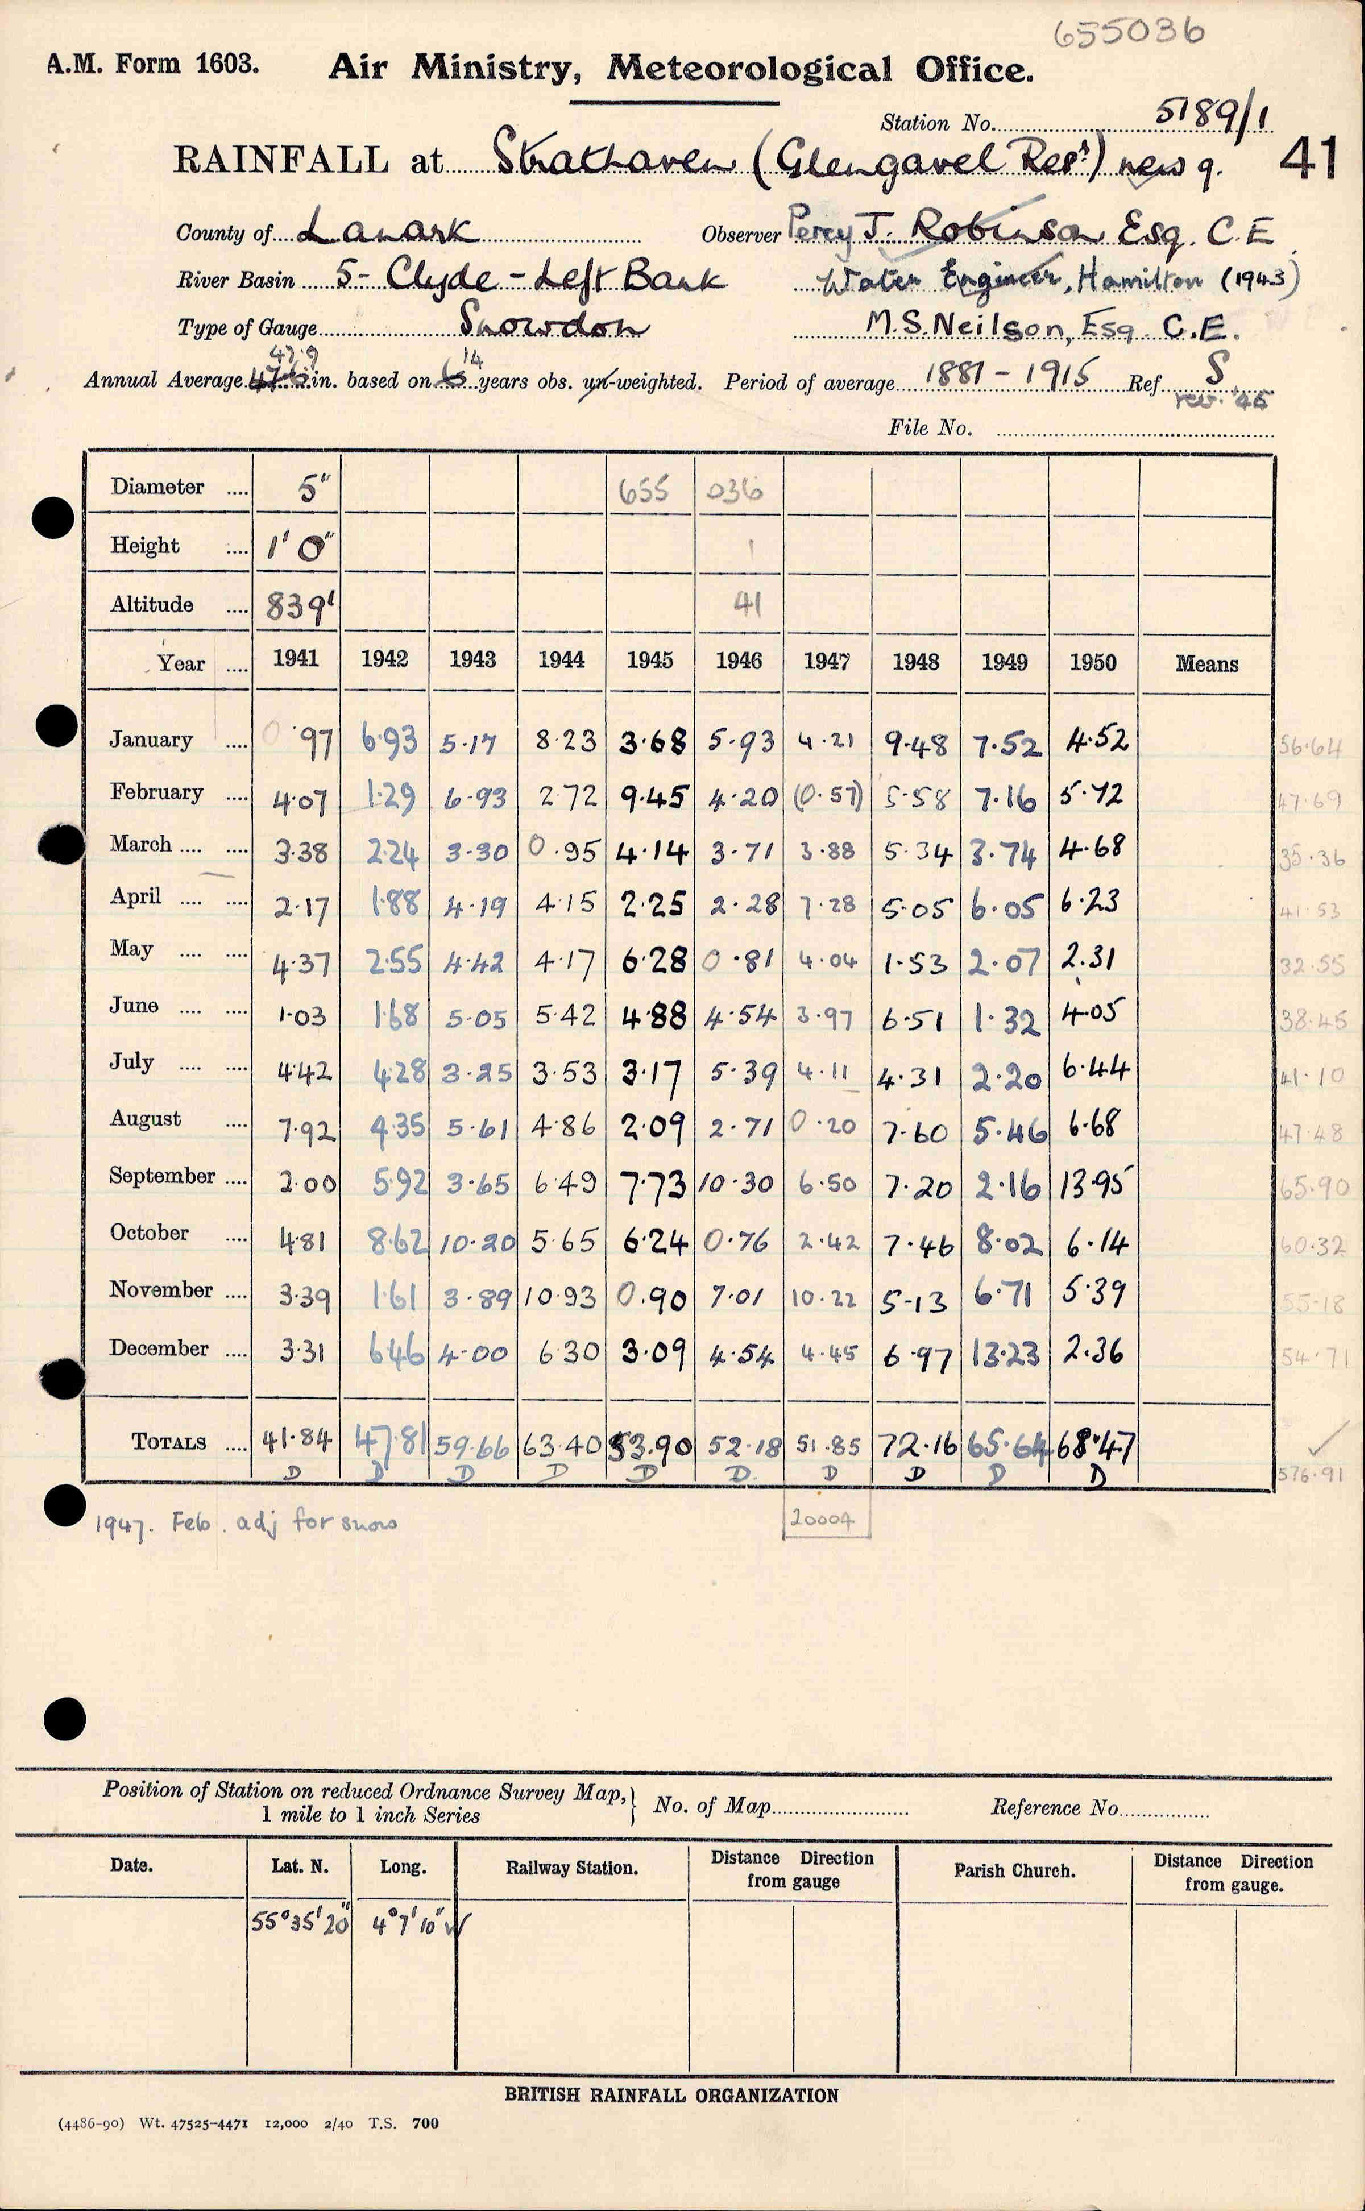 655036
A.M. Form 1603. Air Ministry, Meteorological Office.
Station No. 5189/1
RAINFALL at Strathaven (Glengavel Resr) new g. 41
County of Lanark Observer Percy J. Robinson Esq. C.E.
River Basin 5 - Clyde - Left Bank Water Engineer, Hamilton (1943)
Type of Gauge Snowdon M.S. Neilson, Esq. C.E.
47.9 14
Annual Average in. based on years obs. un-weighted. Period of average 1881 - 1915 Ref. S
rev. '45
File No.
Diameter .... 5" 655 036
Height .... 1' 0" 1
Altitude .... 839' 41
Year .... 1941 1942 1943 1944 1945 1946 1947 1948 1949 1950 Means
January .... 0.97 6.93 5.17 8.23 3.68 5.93 4.21 9.48 7.52 4.52 56.64
February .... 4.07 1.29 6.93 2.72 9.45 4.20 (0.57) 5.58 7.16 5.72 47.69
March .... .... 3.38 2.24 3.30 0.95 4.14 3.71 3.88 5.34 3.74 4.68 35.36
April .... .... 2.17 1.88 4.19 4.15 2.25 2.28 7.28 5.05 6.05 6.23 41.53
May .... .... 4.37 2.55 4.42 4.17 6.28 0.81 4.04 1.53 2.07 2.31 32.55
June .... .... 1.03 1.68 5.05 5.42 4.88 4.54 3.97 6.51 1.32 4.05 38.45
July .... .... 4.42 4.28 3.25 3.53 3.17 5.39 4.11 4.31 2.20 6.44 41.10
August .... 7.92 4.35 5.61 4.86 2.09 2.71 0.20 7.60 5.46 6.68 47.48
September .... 2.00 5.92 3.65 6.49 7.73 10.30 6.50 7.20 2.16 13.95 65.90
October .... 4.81 8.62 10.20 5.65 6.24 0.76 2.42 7.46 8.02 6.14 60.32
November .... 3.39 1.61 3.89 10.93 0.90 7.01 10.22 5.13 6.71 5.39 55.18
December .... 3.31 6.46 4.00 6.30 3.09 4.54 4.45 6.97 13.23 2.36 54.71
TOTALS .... 41.84 47.81 59.66 63.40 53.90 52.18 51.85 72.16 65.64 68.47
D D D D D D D D D D 576.91
1947. Feb. adj for snow 20004
Position of Station on reduced Ordnance Survey Map, } No. of Map Reference No.
1 mile to 1 inch Series
Date. Lat. N. Long. Railway Station. Distance from gauge Direction Parish Church. Distance Direction from gauge.
55°35'20" 4°7'10"W
BRITISH RAINFALL ORGANIZATION
(4486-90) Wt. 47525-4471 12,000 2/40 T.S. 700